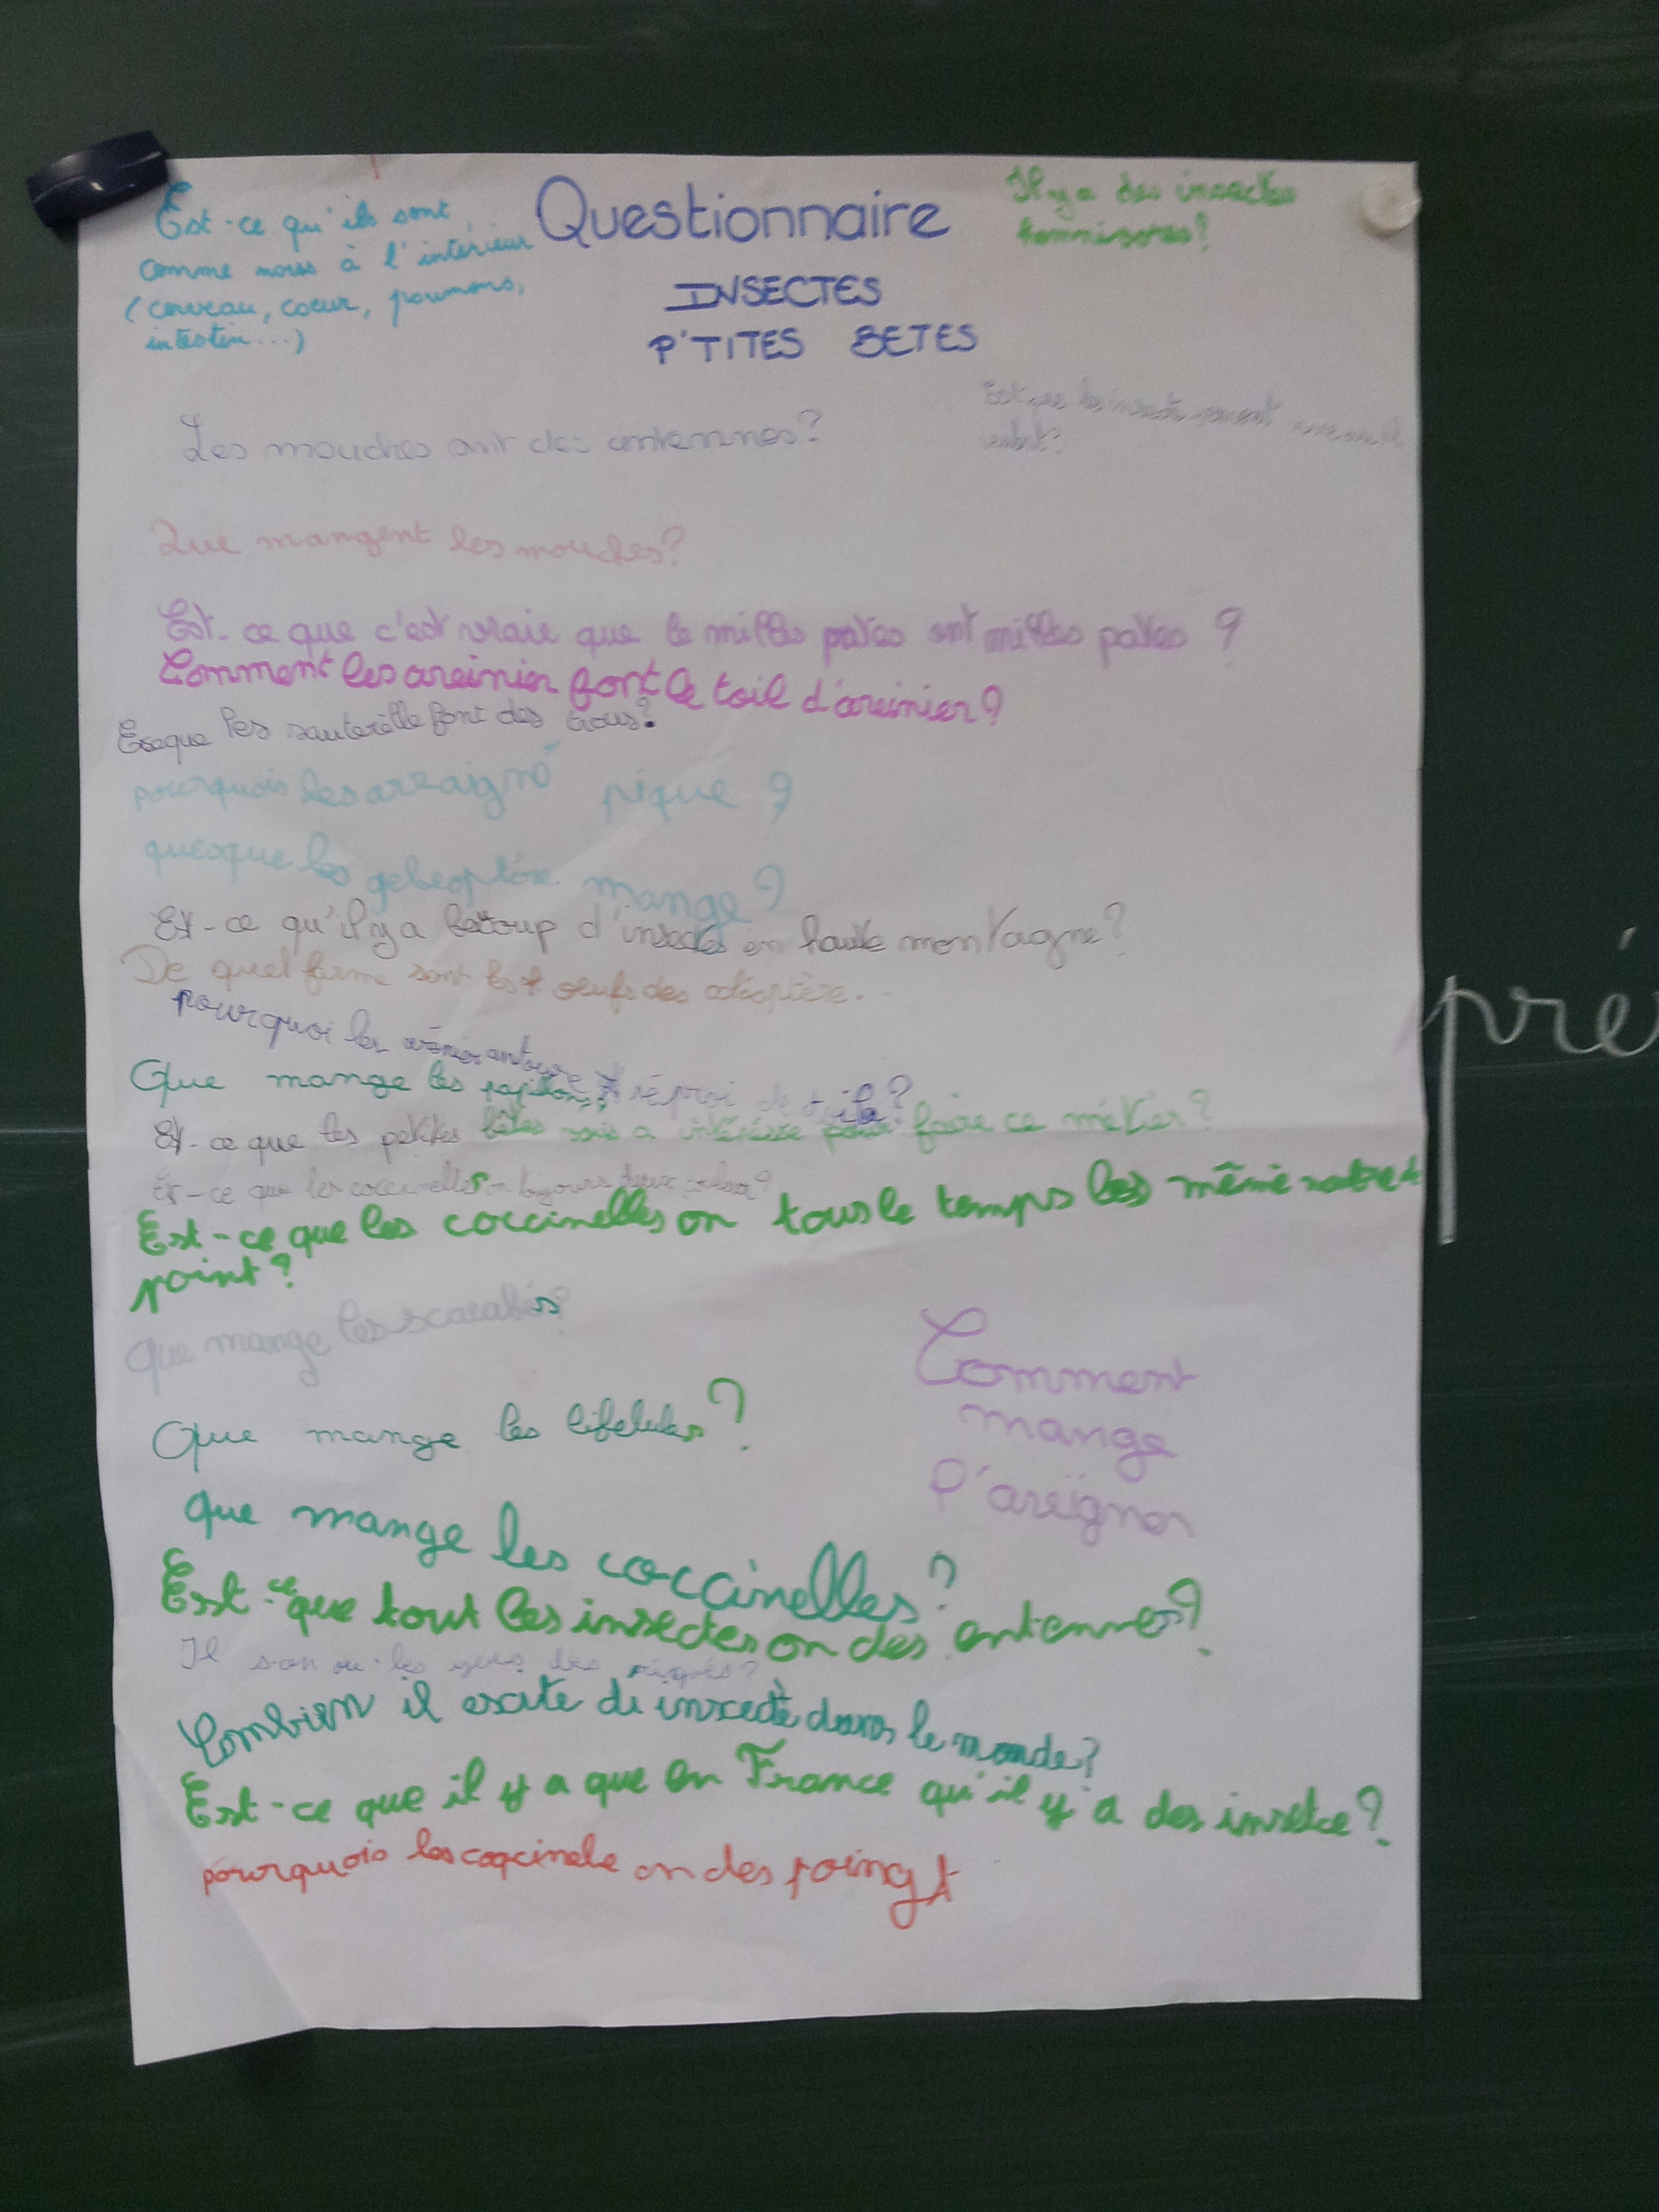 Est-ce qu'ils sont
comme nous à l'intérieur
(cerveau, coeur, poumons,
intestin...)
Questionnaire
INSECTES
P'TITES BETES
Il y a des insectes
Les mouches ont des antennes?
Que mangent les mouches?
Est-ce que c'est vraie que le milles pates ont milles pates ?
Comment les areinier font le toil d'areinier?
Eseque les sauterelle font des trous?
pourquois les arraigné pique ?
quesque les mange?
Est-ce qu'il y a becoup d'insectes en haute montagne?
De quel forme sont les oeufs des coléoptère.
pourquoi les
Que mange les papillons?
Est-ce que les petites bêtes a faire ce métier?
Est-ce que les coccinelles on toujours deux couleur?
Est-ce que les coccinelles on tous le temps les même nobre
point?
Que mange les scarabés?
Comment
mange
l'areigner
Que mange les lifelules?
que mange les coccinelles?
Est-ce que tout les insectes on des antennes?
Il son ou les yeus des
Combien il exite di insecte dans le monde?
Est-ce que il y a que en France qu'il y a des insetce?
pourquois les coqcinele on des poingt
pré